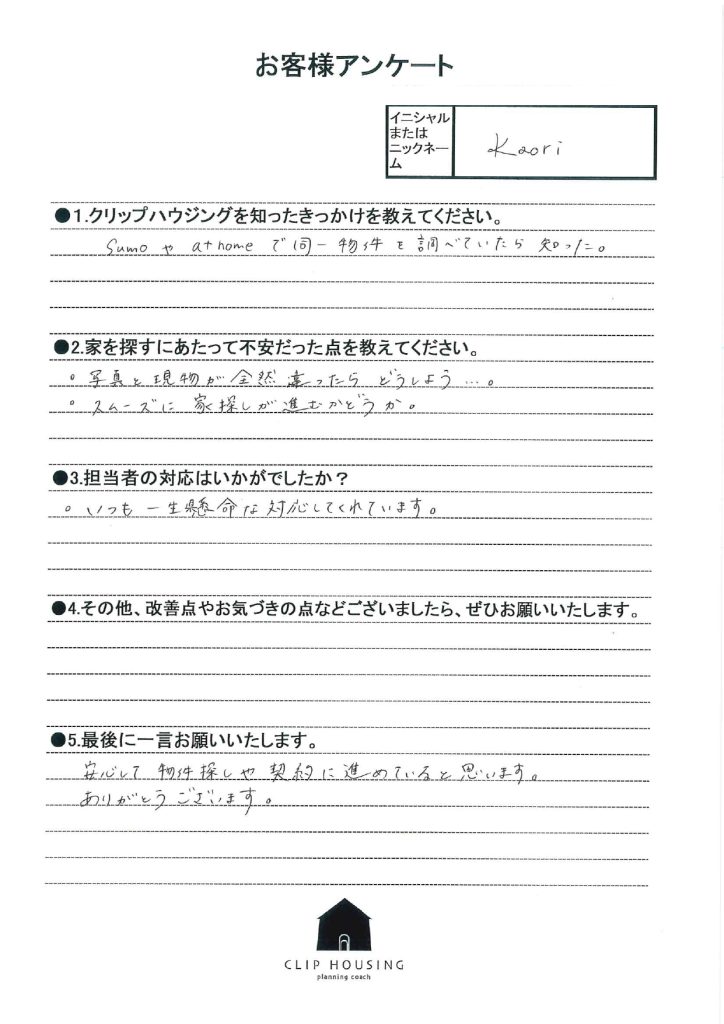 お客様アンケート
イニシャル
または
ニックネー
ム
Kaori
●1.クリップハウジングを知ったきっかけを教えてください。
Sumoや athomeで同一物件を調べていたら知った。
●2.家を探すにあたって不安だった点を教えてください。
。写真と現物が全然違ったらどうしよう…。
。スムーズに家探しが進むかどうか。
●3.担当者の対応はいかがでしたか？
。いつも一生懸命な対応してくれています。
●4.その他、改善点やお気づきの点などございましたら、ぜひお願いいたします。
●5.最後に一言お願いいたします。
安心して物件探しや契約に進めていると思います。
ありがとうございます。
CLIP HOUSING
planning coach